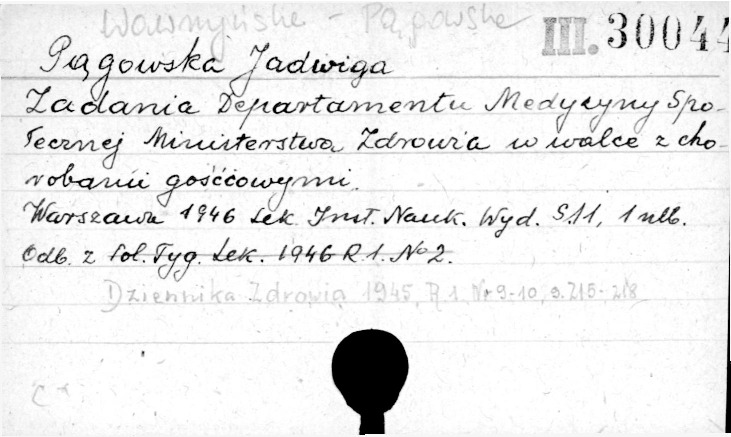 Wawrzyńska - Pągowska
III. 30044
Pągowska Jadwiga
Zadania Departamentu Medycyny Spo-
łecznej Ministerstwa Zdrowia w walce z cho-
robami gośćcowymi.
Warszawa 1946 Lek. Inst. Nauk. Wyd. S.11, 1 nlb.
Odb. z Pol. Tyg. Lek. 1946 R 1. № 2.
Dziennika Zdrowia 1945, R 1, Nr 9-10, s. 215-218
C